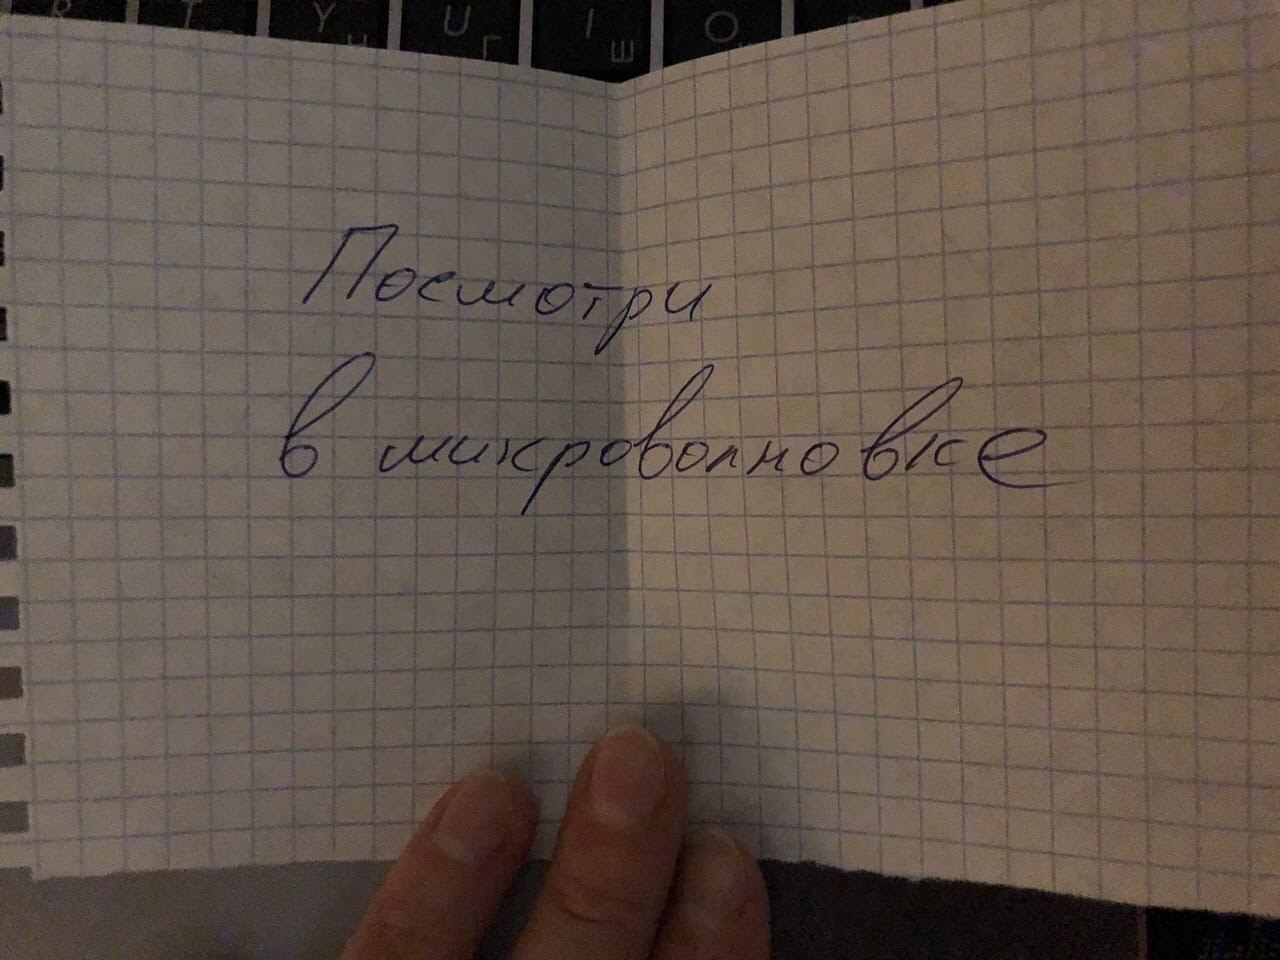 R T Y U I O
Н Г Ш
Посмотри
в микроволновке